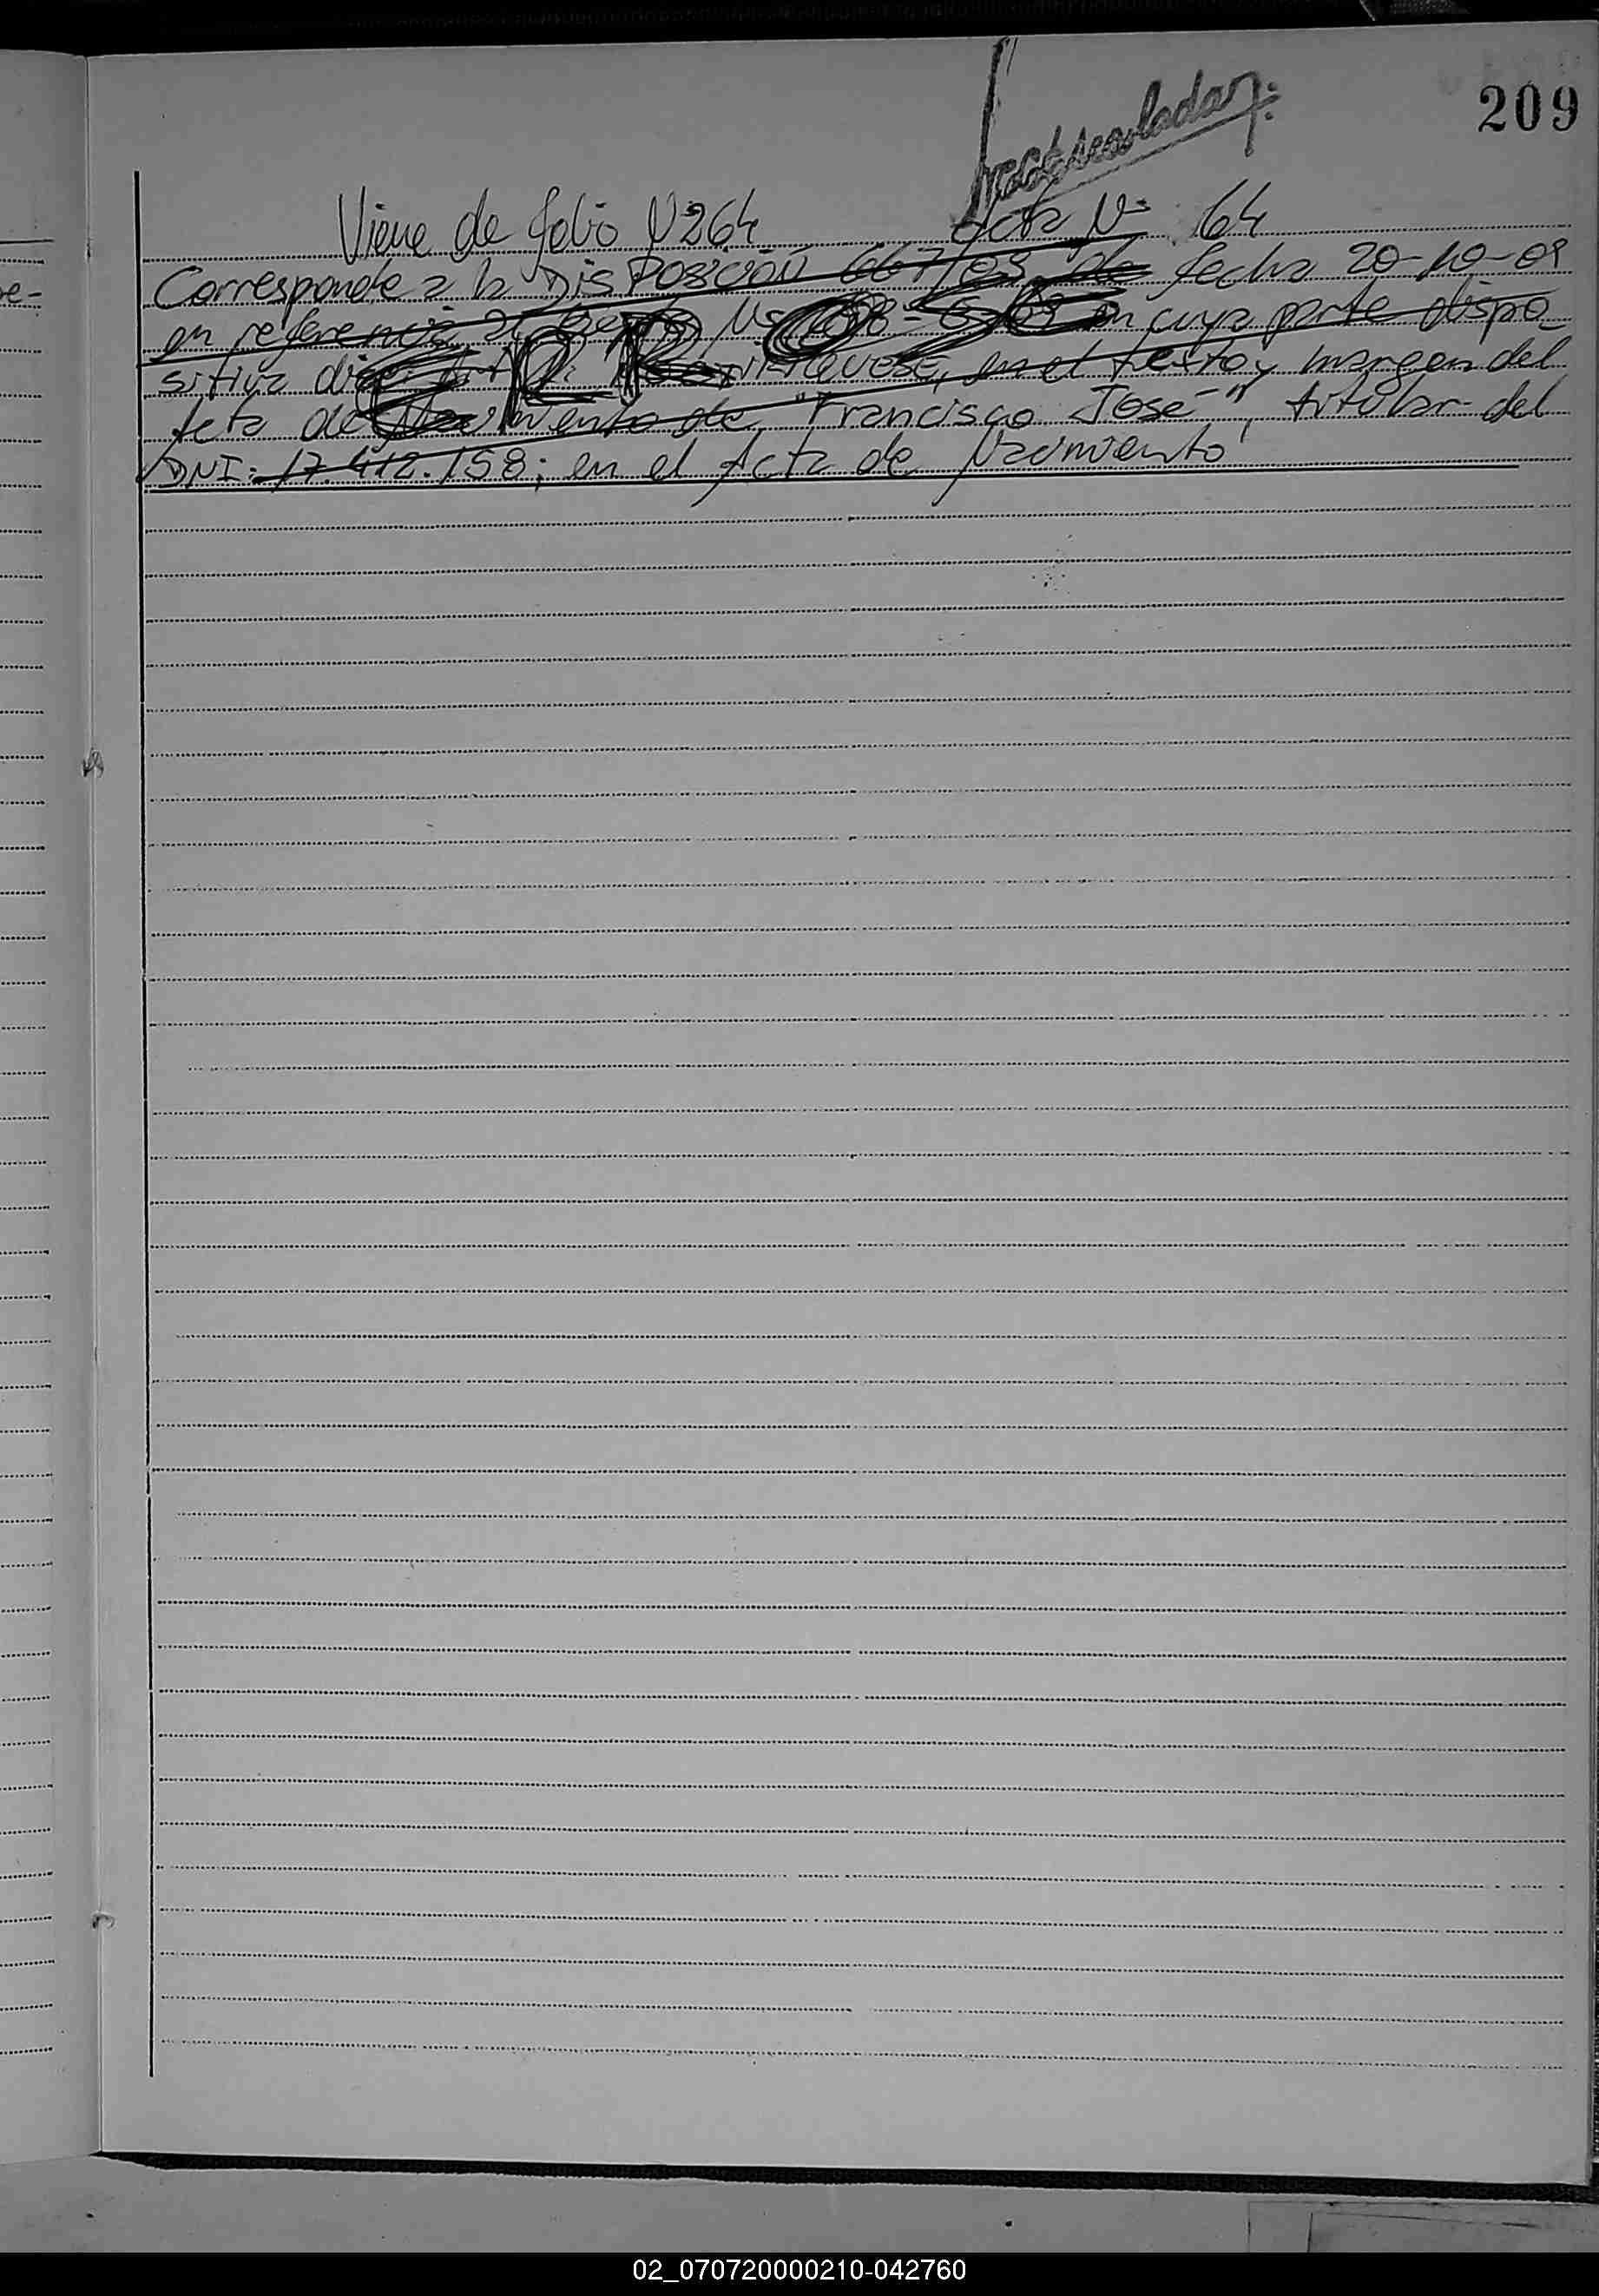 209
Viene de folio N264 Acta Nº 64
Corresponde a la DISPOSICIÓN 667/09 de fecha 20-10-09
en referencia al en cuya parte dispo
sitiva en el texto y margen del
Acta de Nacimiento de "Francisco José", titular del
DNI: 17.412.158; en el Acta de Nacimiento
ERROSE
02_070720000210-042760